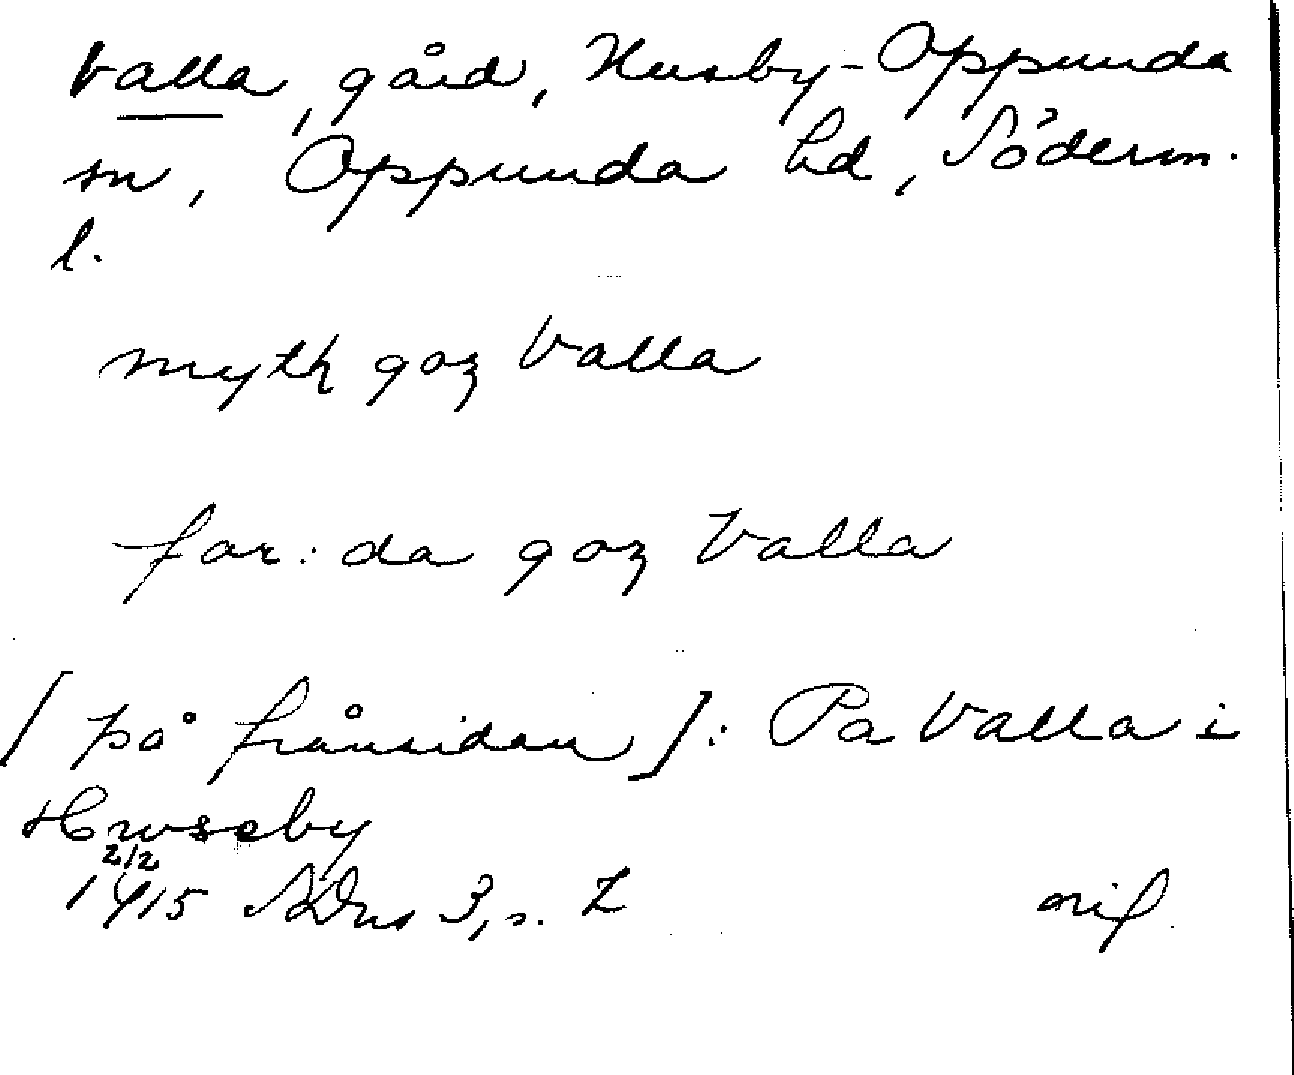 Valla, gård, Husby-Oppunda
sn, Oppunda hd, Söderm.
l.
myth goz Valla
for: da goz Valla
[på frånsidan]: Pa Valla i
Hwseby
2/2
1415 SDns 3, s. 2